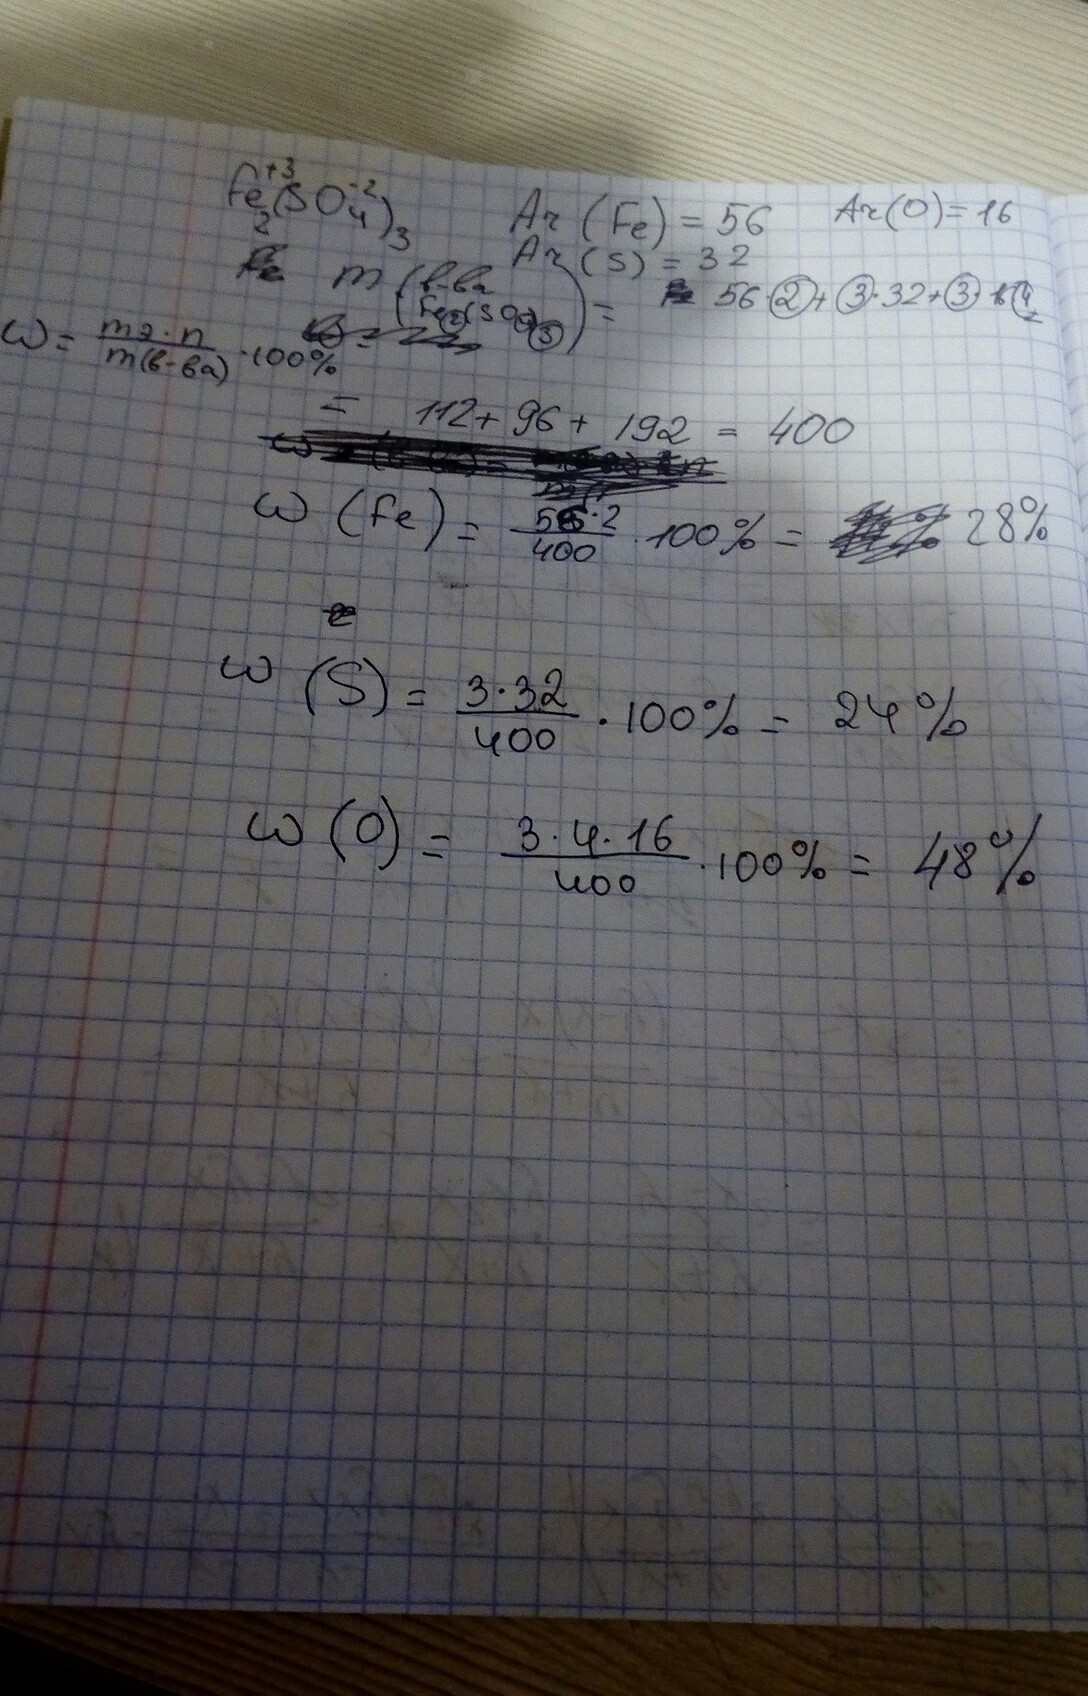 Fe₂⁺³(SO₄⁻²)₃ Ar(Fe) = 56 Ar(O) = 16
Ar(S) = 32
m (в-ва Fe₂(SO₄)₃) = 56·2 + 3·32 + 3·
ω = mэ·n / m(в-ва) · 100%
= 112 + 96 + 192 = 400
ω (Fe) = 56·2 / 400 · 100% = 28%
ω (S) = 3·32 / 400 · 100% = 24%
ω (O) = 3·4·16 / 400 · 100% = 48%